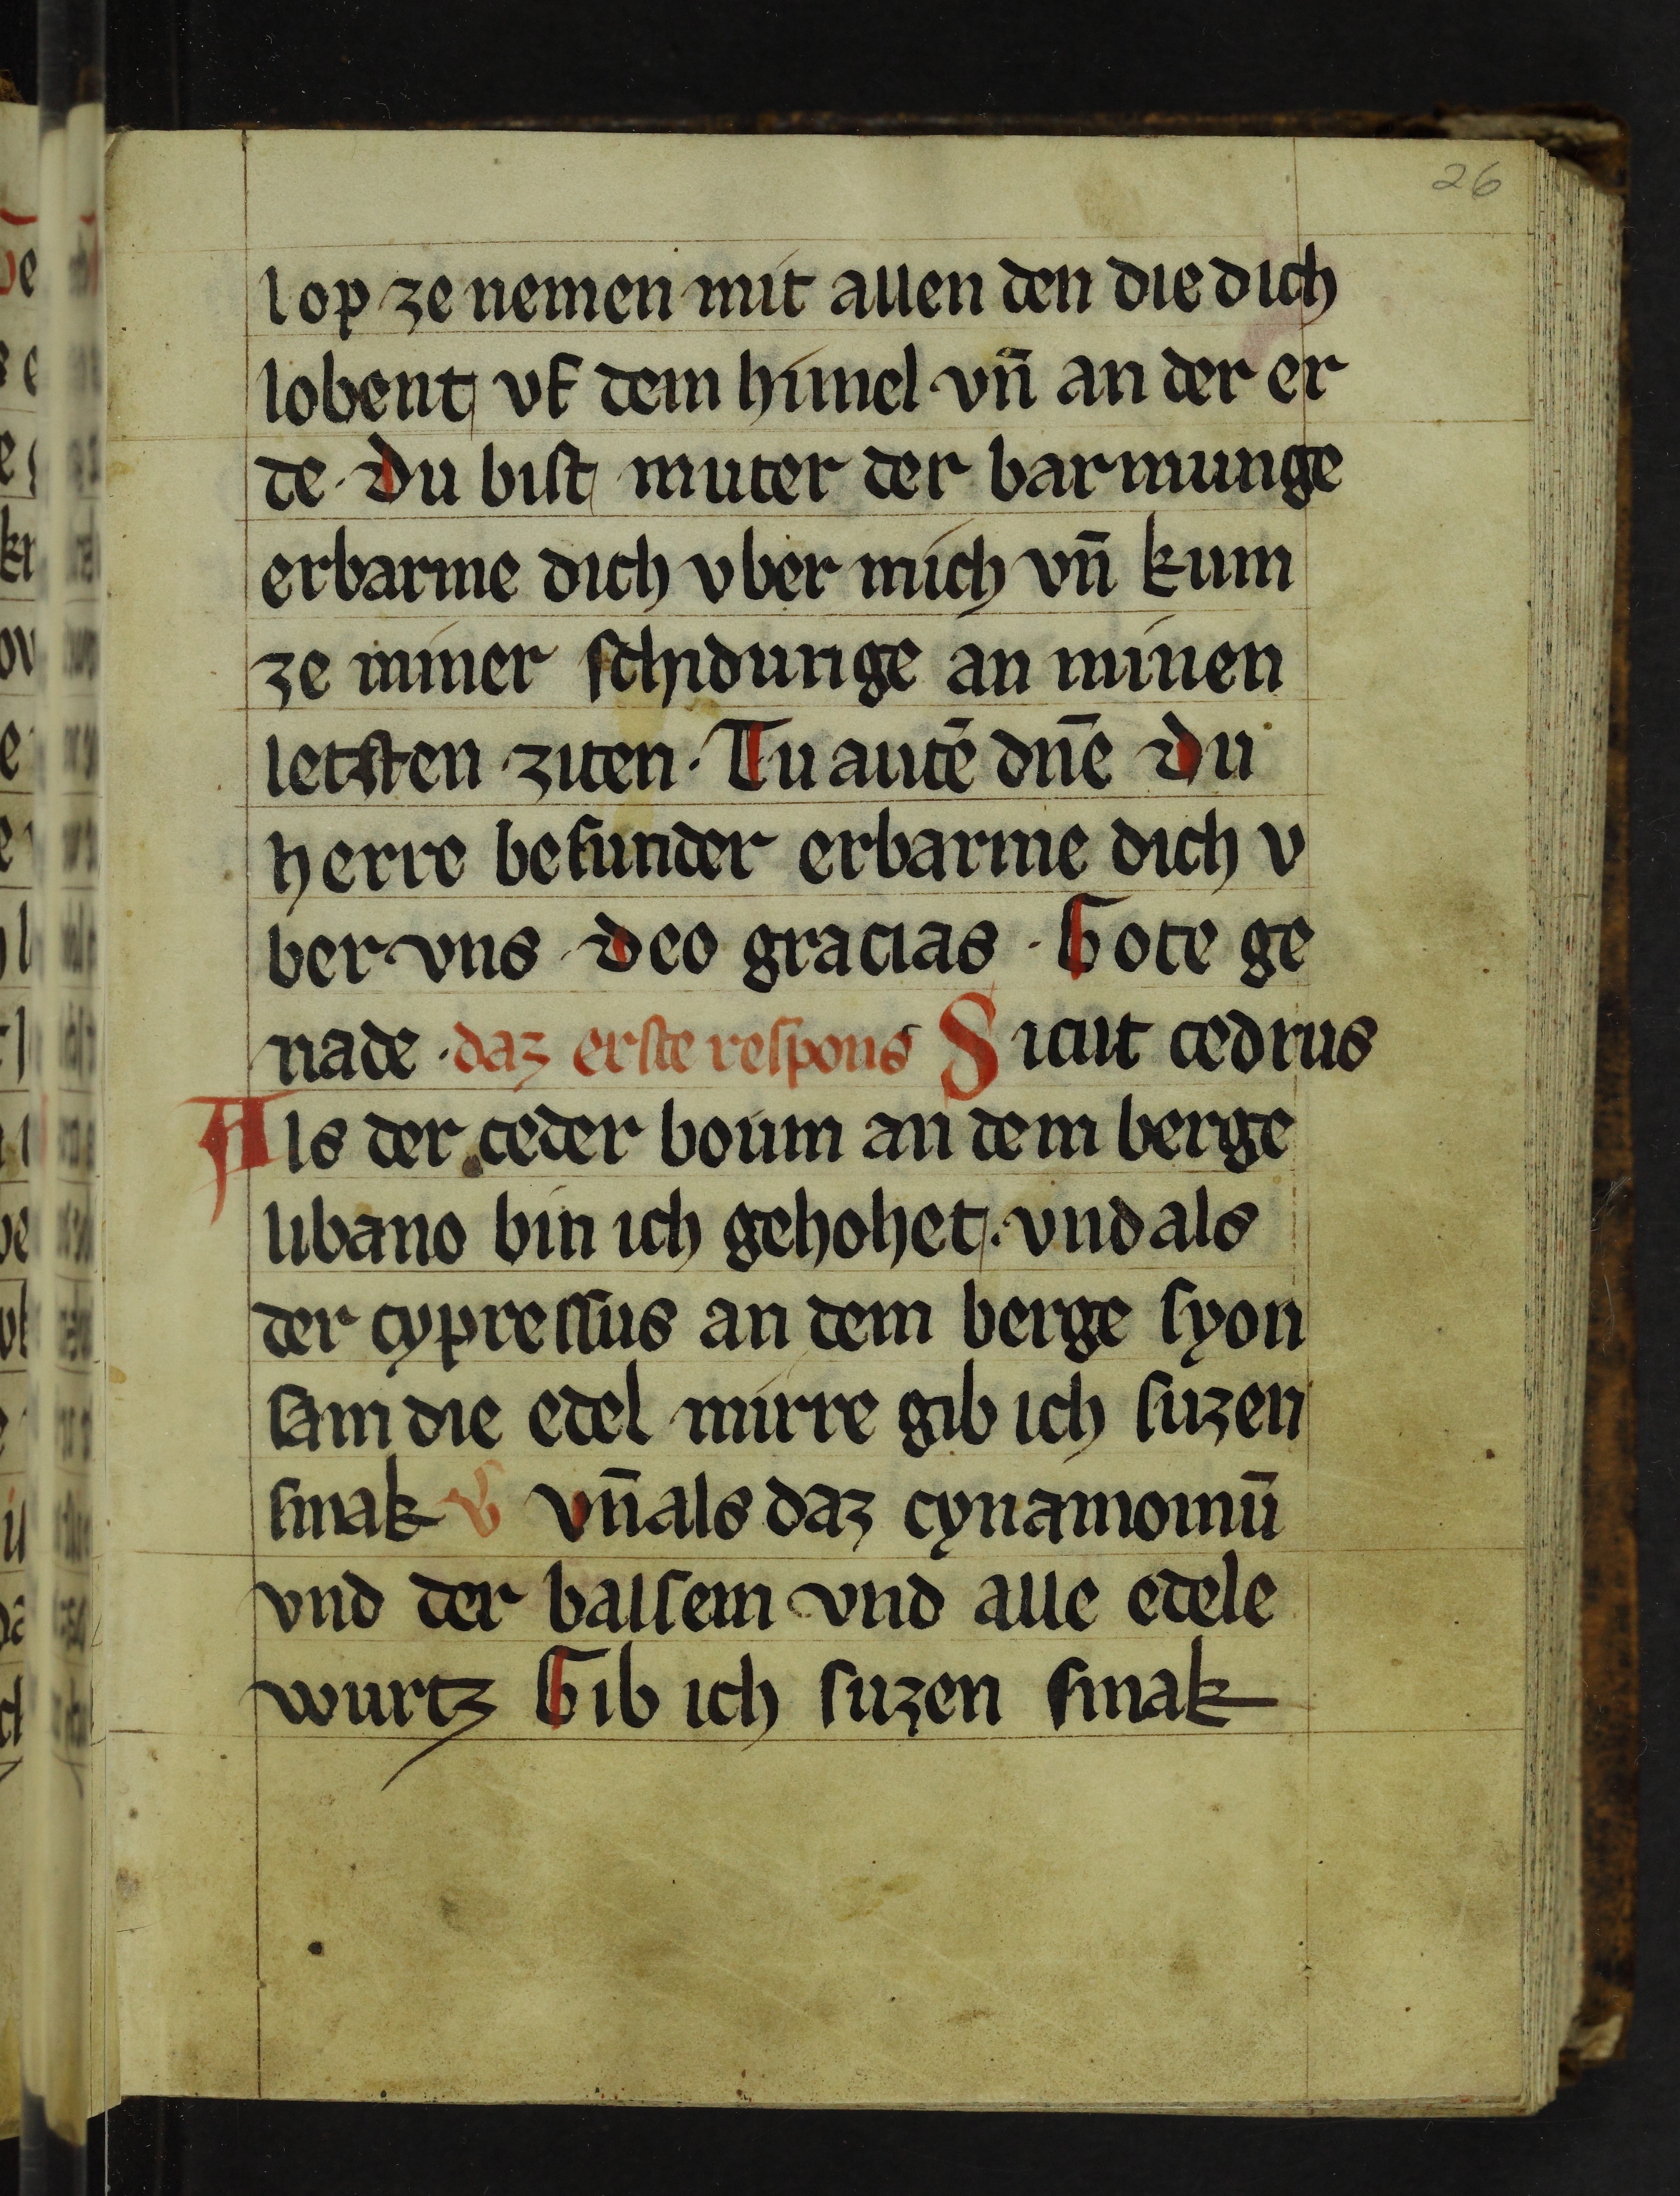 26
lop ze nemen mit allen den die dich
lobent vf dem himel vn̄ an der er
de · Du bist muter der barmunge
erbarme dich vber mich vn̄ kum
ze miner schidunge an minen
letsten ziten · Tu autē dn̄e Du
herre besunder erbarme dich v
ber vns · Deo gracias · Gote ge
nade · daz erste respons Sicut cedrus
Als der ceder boum an dem berge
libano bin ich gehohet · vnd als
der cypressus an dem berge syon
sam die edel mirre gib ich suzen
smak V vn̄ als daz cynamomū
vnd der balsem vnd alle edele
wurtz Gib ich suzen smak